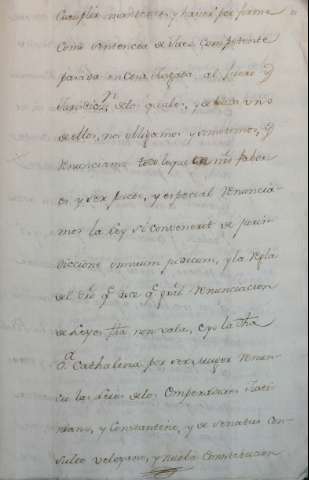 Cumplir mantener, y haver por firme
como sentencia de Juez competente
pasada en cosa Juzgada al fuero y
Jurisdicⁿ. de los quales, y de cada uno
de ellos, nos obligamos y sometemos, y
renunciamos todo lo que en nro. fabor
es y ser puede, y especial renuncia-
mos la Ley si convenerit de juris
diccione omnium judicum, y la Regla
del dro. q.ᵉ dice q.ᵉ gral. renunciacion
de Leyes fha non vala, e yo la dha
D.ᵃ Cathalina por ser muger renun-
cio las Leies de los Emperadores Justi
niano, y Constantino, y de senatus con
sulto veleyano, y nueba Constitucion